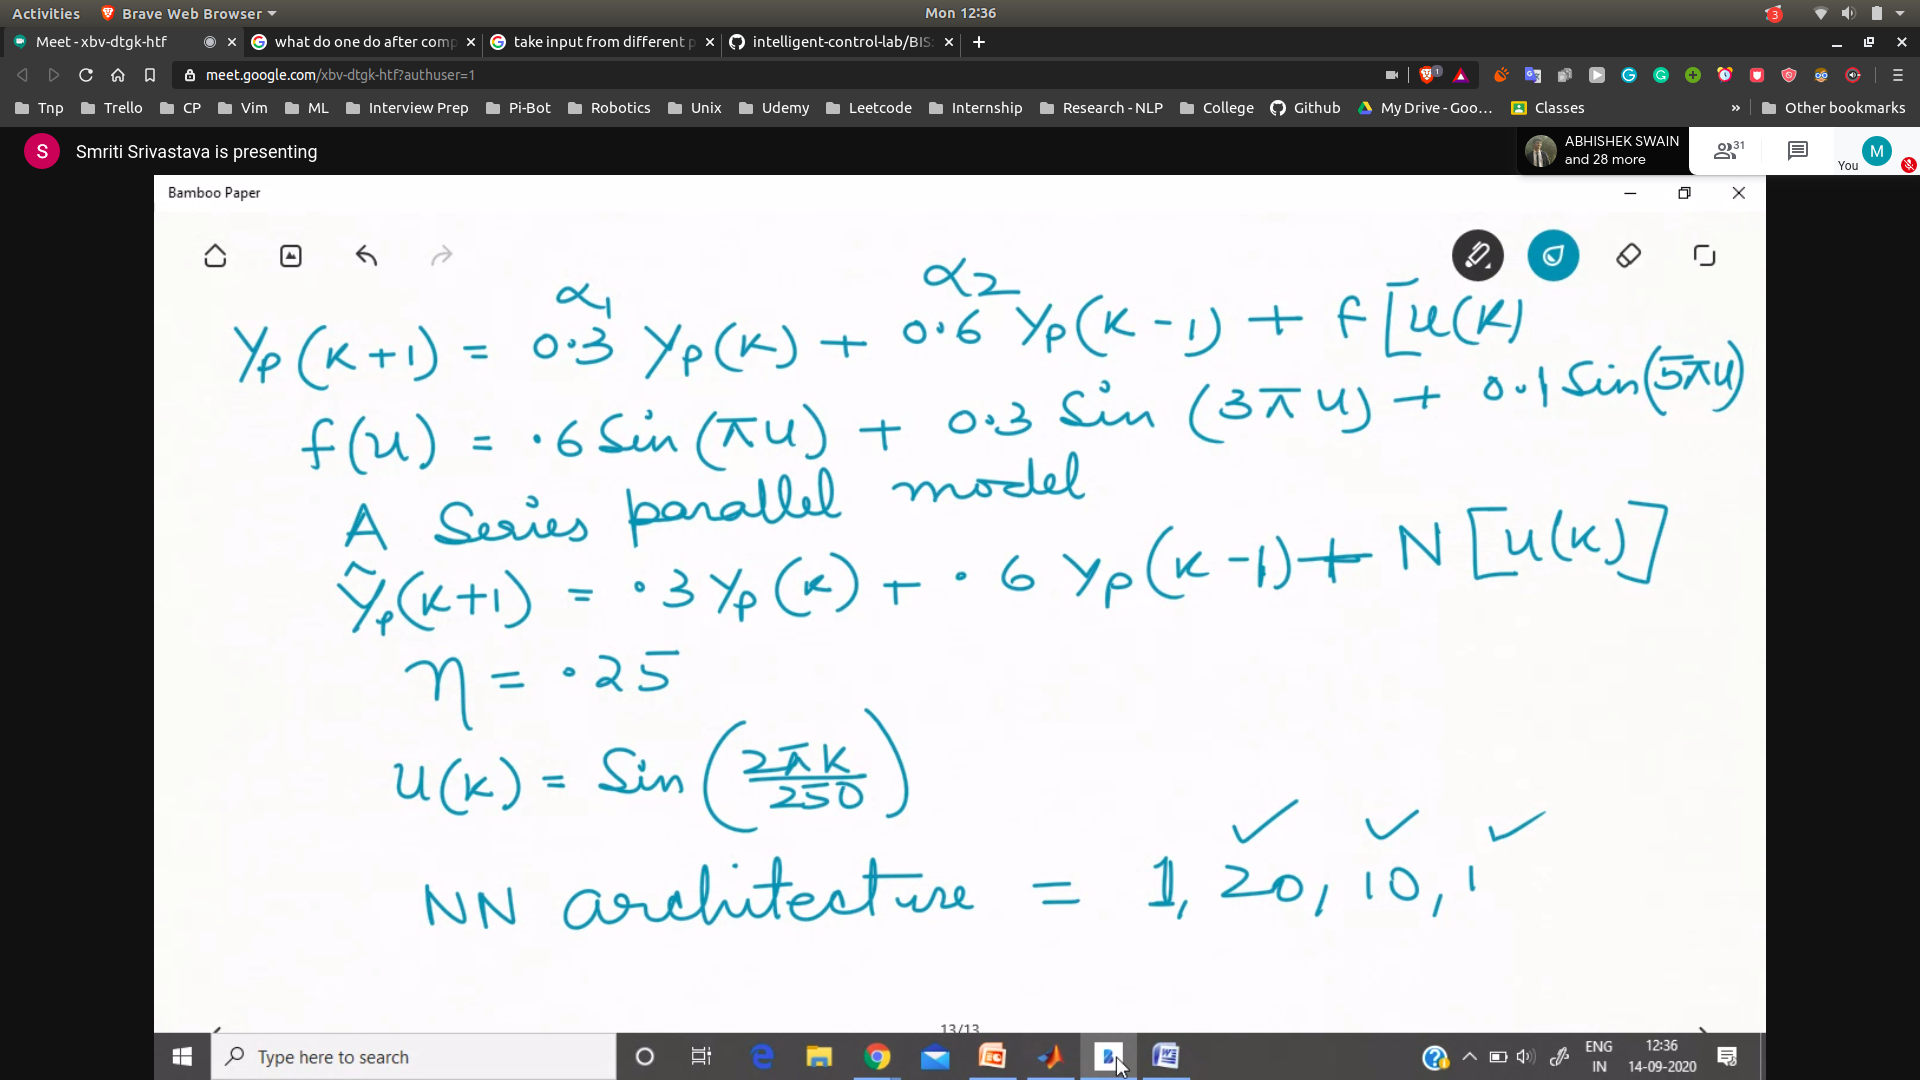 Activities Brave Web Browser Mon 12:36 3
Meet - xbv-dtgk-htf what do one do after comp take input from different p intelligent-control-lab/BIS
meet.google.com/xbv-dtgk-htf?authuser=1 1
Tnp Trello CP Vim ML Interview Prep Pi-Bot Robotics Unix Udemy Leetcode Internship Research - NLP College Github My Drive - Goo… Classes » Other bookmarks
S Smriti Srivastava is presenting ABHISHEK SWAIN and 28 more 31 You M
Bamboo Paper
α1 α2
Yp(k+1) = 0.3 Yp(k) + 0.6 Yp(k-1) + f[u(k)
f(u) = .6 Sin(πu) + 0.3 Sin(3πu) + 0.1 Sin(5πu)
A Series parallel model
Ŷp(k+1) = .3 Yp(k) + .6 Yp(k-1) + N[u(k)]
η = .25
u(k) = Sin(2πk/250)
NN architecture = 1, 20, 10, 1
13/13
Type here to search ENG IN 12:36 14-09-2020